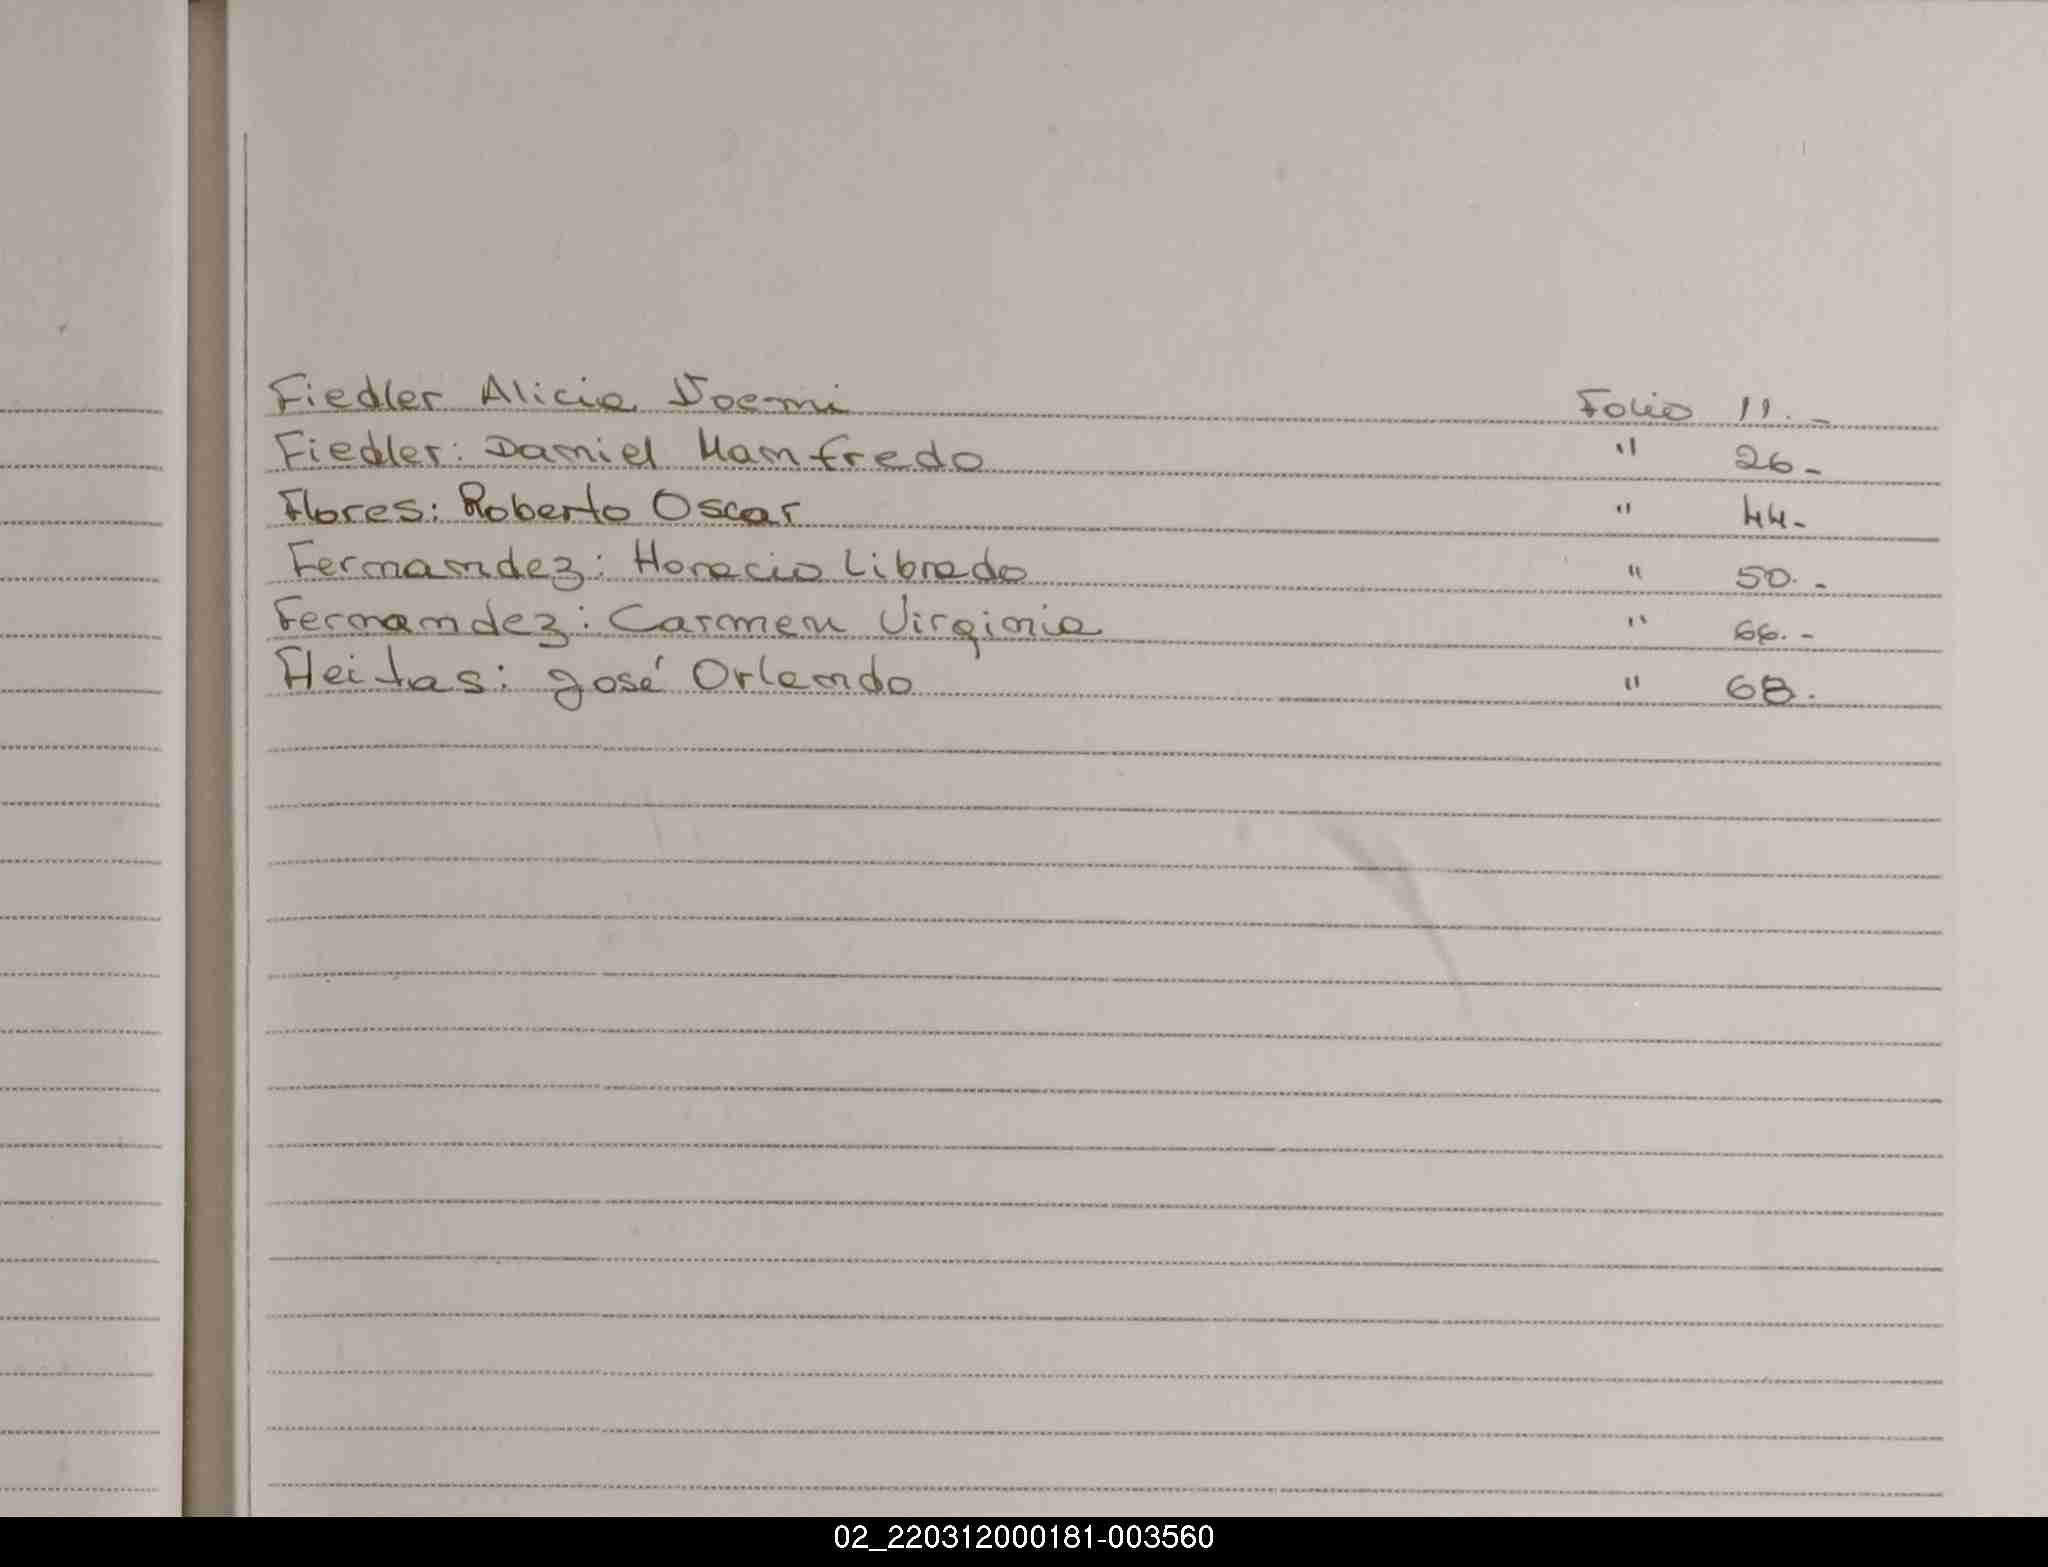 Fiedler Alicia Noemi Folio 11.-
Fiedler: Daniel Manfredo " 26-
Flores: Roberto Oscar " 44-
Fernandez: Horacio Librado " 50.-
Fernandez: Carmen Virginia " 66.-
Fleitas: José Orlando " 68.
02_220312000181-003560